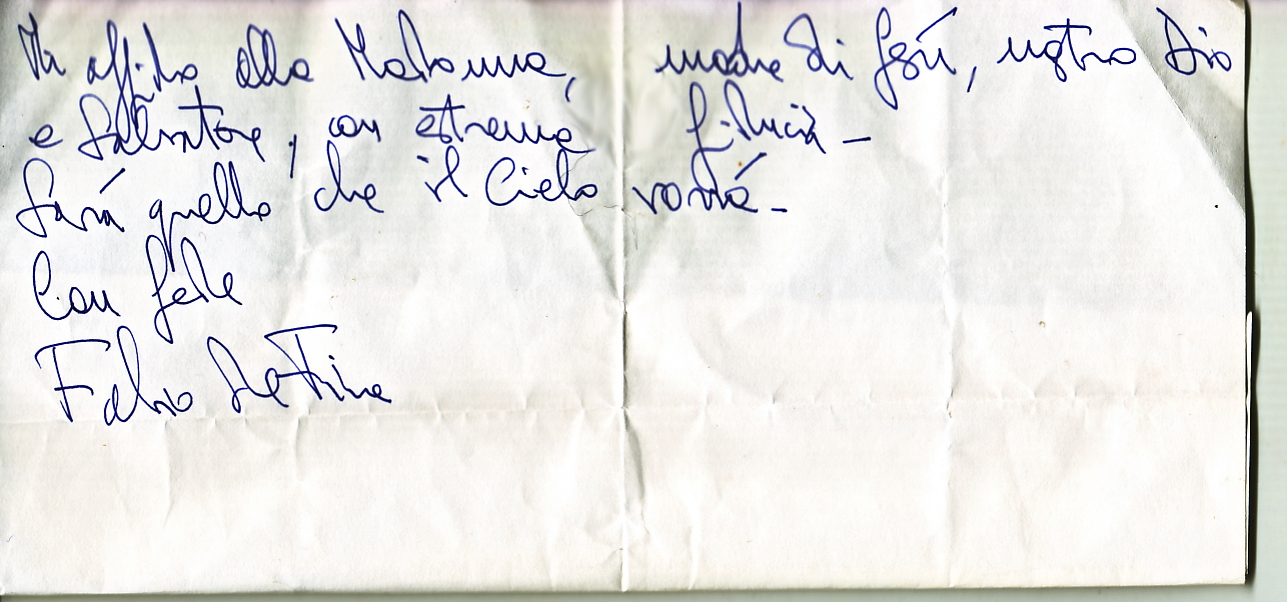 Mi affido alla Madonna, madre di Gesù, nostro Dio
e Salvatore, con estrema fiducia -
Sarà quello che il Cielo vorrà -
Con fede
Fabio